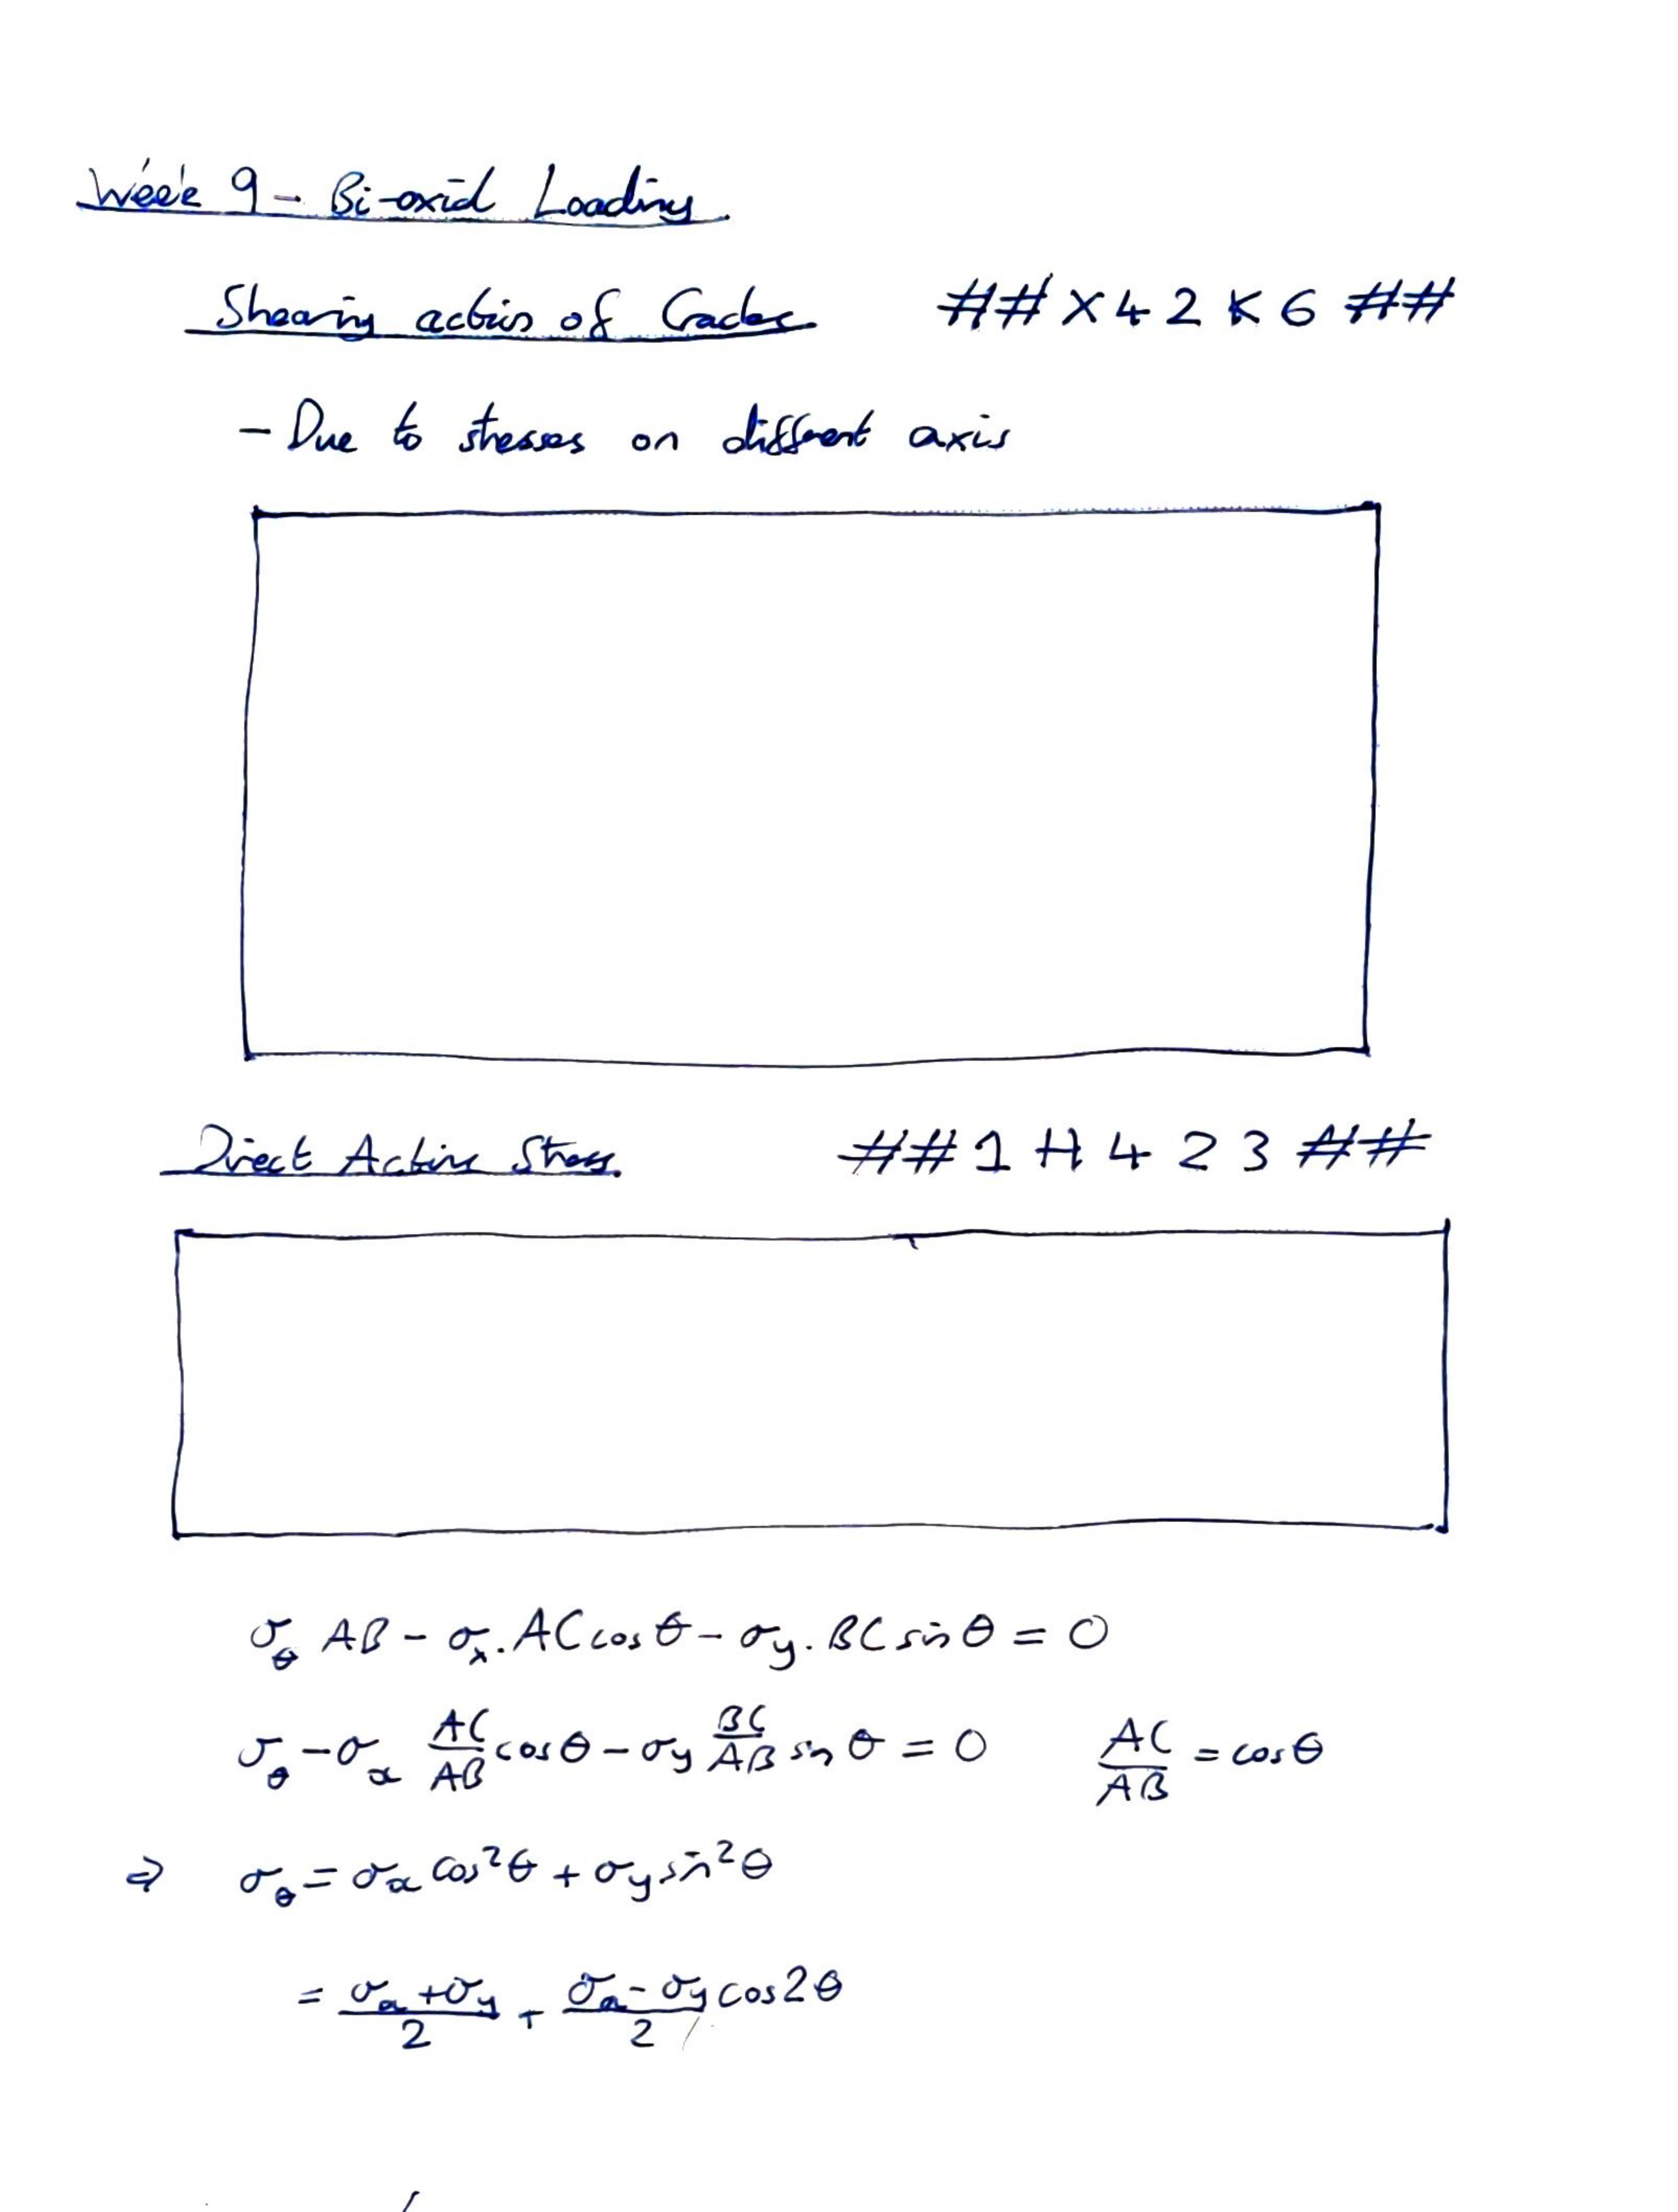 Week 9 - Bi-axial Loading
Shearing action of Cracks ##X42K6##
- Due to stresses on different axis
Direct Acting Stress ##1H423##
σ_θ AB - σ_x . AC cosθ - σ_y . BC sinθ = 0
σ_θ - σ_x AC/AB cosθ - σ_y BC/AB sinθ = 0 AC/AB = cosθ
⇒ σ_θ = σ_x cos²θ + σ_y sin²θ
= (σ_x + σ_y)/2 + (σ_x - σ_y)/2 cos2θ